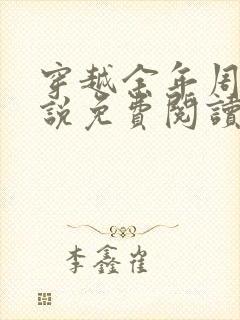 穿越金年周
說免費閱讀
李鑫雀